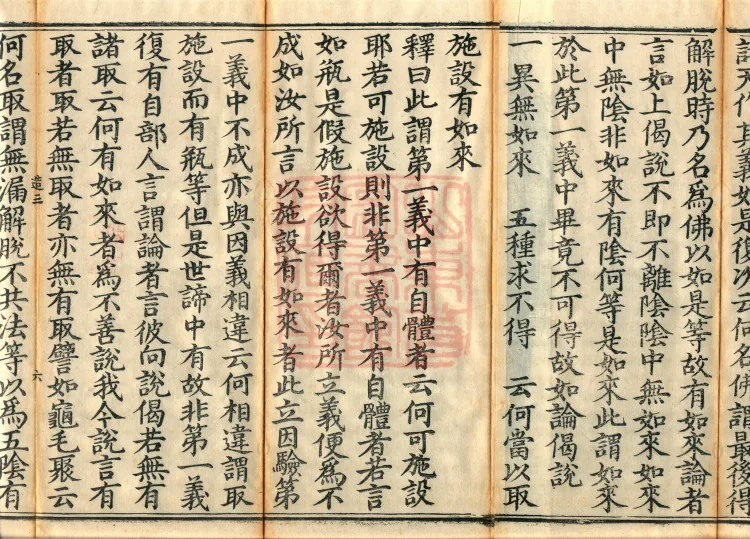 解脫時乃名爲佛以如是等故有如來論者
言如上偈說不即不離陰陰中無如來如來
中無陰非如來有陰何等是如來此謂如來
於此第一義中畢竟不可得故如論偈說
一異無如來 五種求不得 云何當以取
施設有如來
釋曰此謂第一義中有自體者云何可施設
耶若可施設則非第一義中有自體者若言
如瓶是假施設欲得爾者汝所立義便爲不
成如汝所言以施設有如來者此立因驗第
一義中不成亦與因義相違云何相違謂取
施設而有瓶等但是世諦中有故非第一義
復有自部人言謂論者言彼向說偈若無有
諸取云何有如來者爲不善說我今說言有
造三 六
取者取若無取者亦無有取譬如龜毛聚云
何名取謂無漏解脫不共法等以爲五陰有